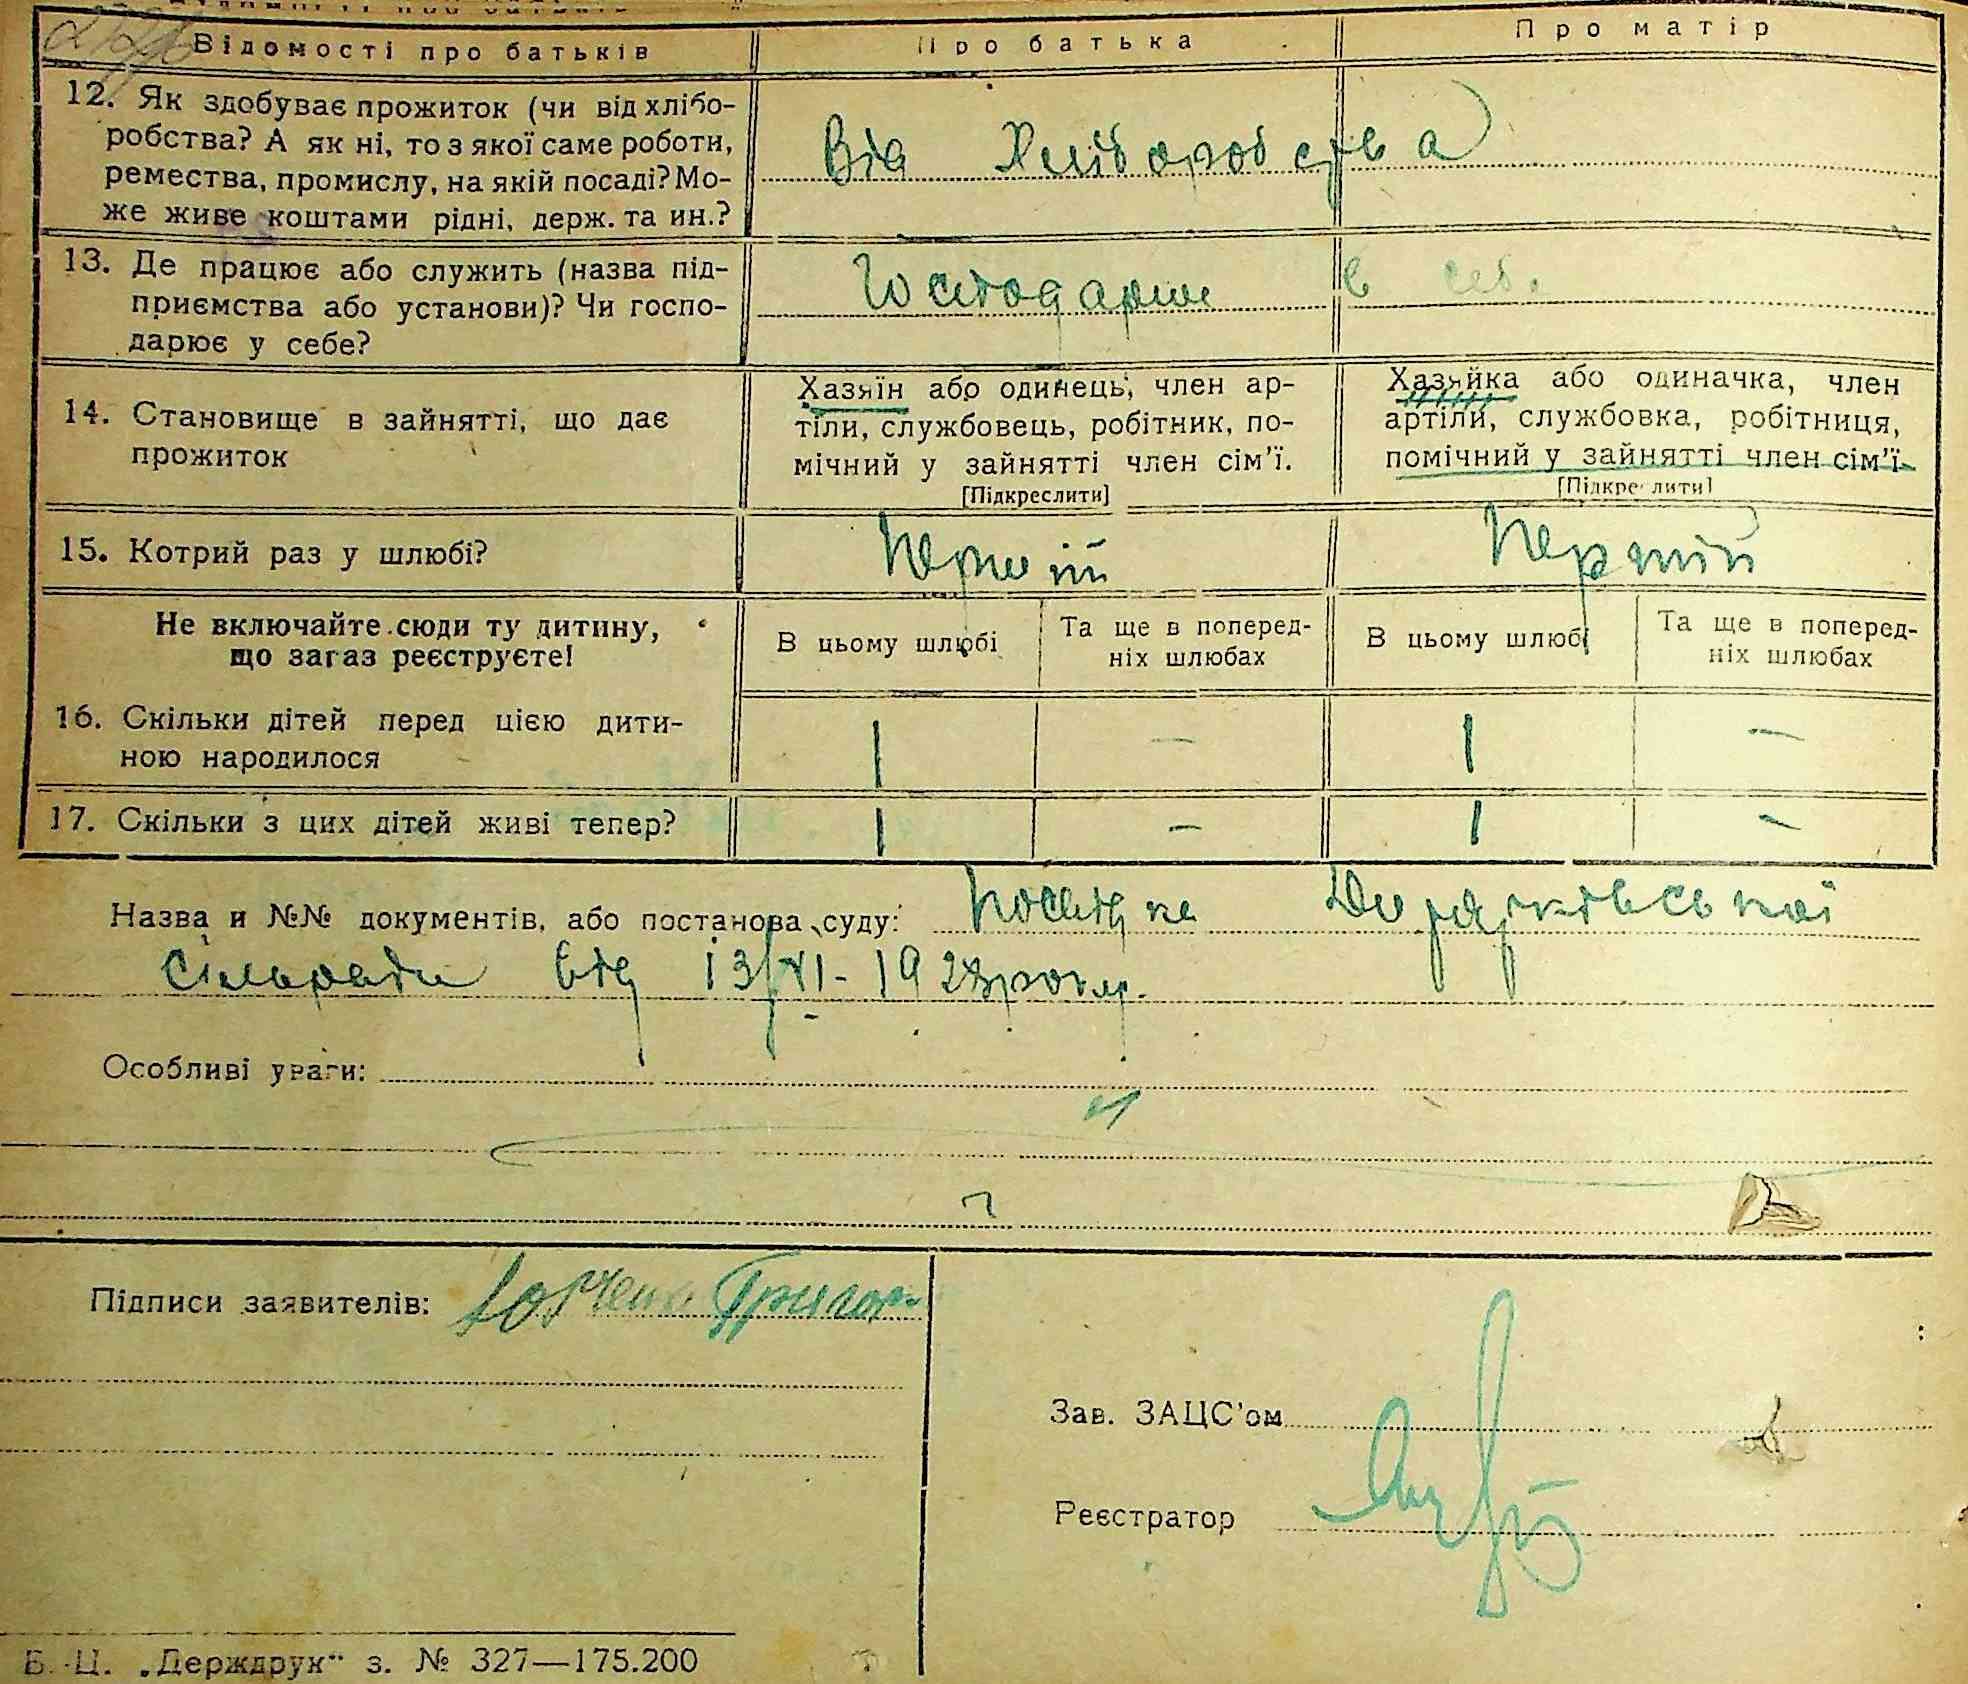 Відомості про батьків Про батька Про матір
12. Як здобуває прожиток (чи від хлібо-
робства? А як ні, то з якої саме роботи,
ремества, промислу, на якій посаді? Мо-
же живе коштами рідні, держ. та ин.?
Від Хліборобства
13. Де працює або служить (назва під-
приємства або установи)? Чи госпо-
дарює у себе?
Господарює в себ.
14. Становище в зайнятті, що дає
прожиток
Хазяїн або одинець, член ар-
тіли, службовець, робітник, по-
мічний у зайнятті член сім'ї.
[Підкреслити]
Хазяйка або одиначка, член
артіли, службовка, робітниця,
помічний у зайнятті член сім'ї
[Підкреслити]
15. Котрий раз у шлюбі? Перший Перший
Не включайте сюди ту дитину,
що зараз реєструєте!
В цьому шлюбі
Та ще в поперед-
ніх шлюбах
В цьому шлюбі
Та ще в поперед-
ніх шлюбах
16. Скільки дітей перед цією дити-
ною народилося
1 – 1 –
17. Скільки з цих дітей живі тепер? 1 – 1 –
Назва и №№ документів, або постанова суду: Посвідка
Сільради від 13/XI-1928 року.
Особливі уваги:
Підписи заявителів: Григор
Зав. ЗАЦС'ом
Реєстратор
Б. Ц. „Держдрук" з. № 327—175.200